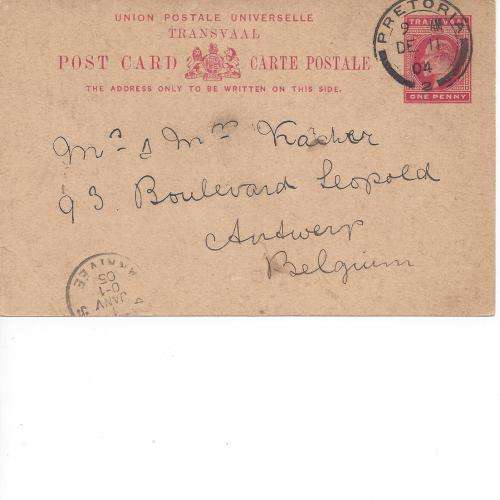 UNION POSTALE UNIVERSELLE
TRANSVAAL
POST CARD CARTE POSTALE
THE ADDRESS ONLY TO BE WRITTEN ON THIS SIDE.
PRETORIA
DE 11
04
2
TRANSVAAL
ONE PENNY
Mr & Mrs Kascher
93 Boulevard Leopold
Antwerp
Belgium
ARRIVÉE
JANV
0-1
05